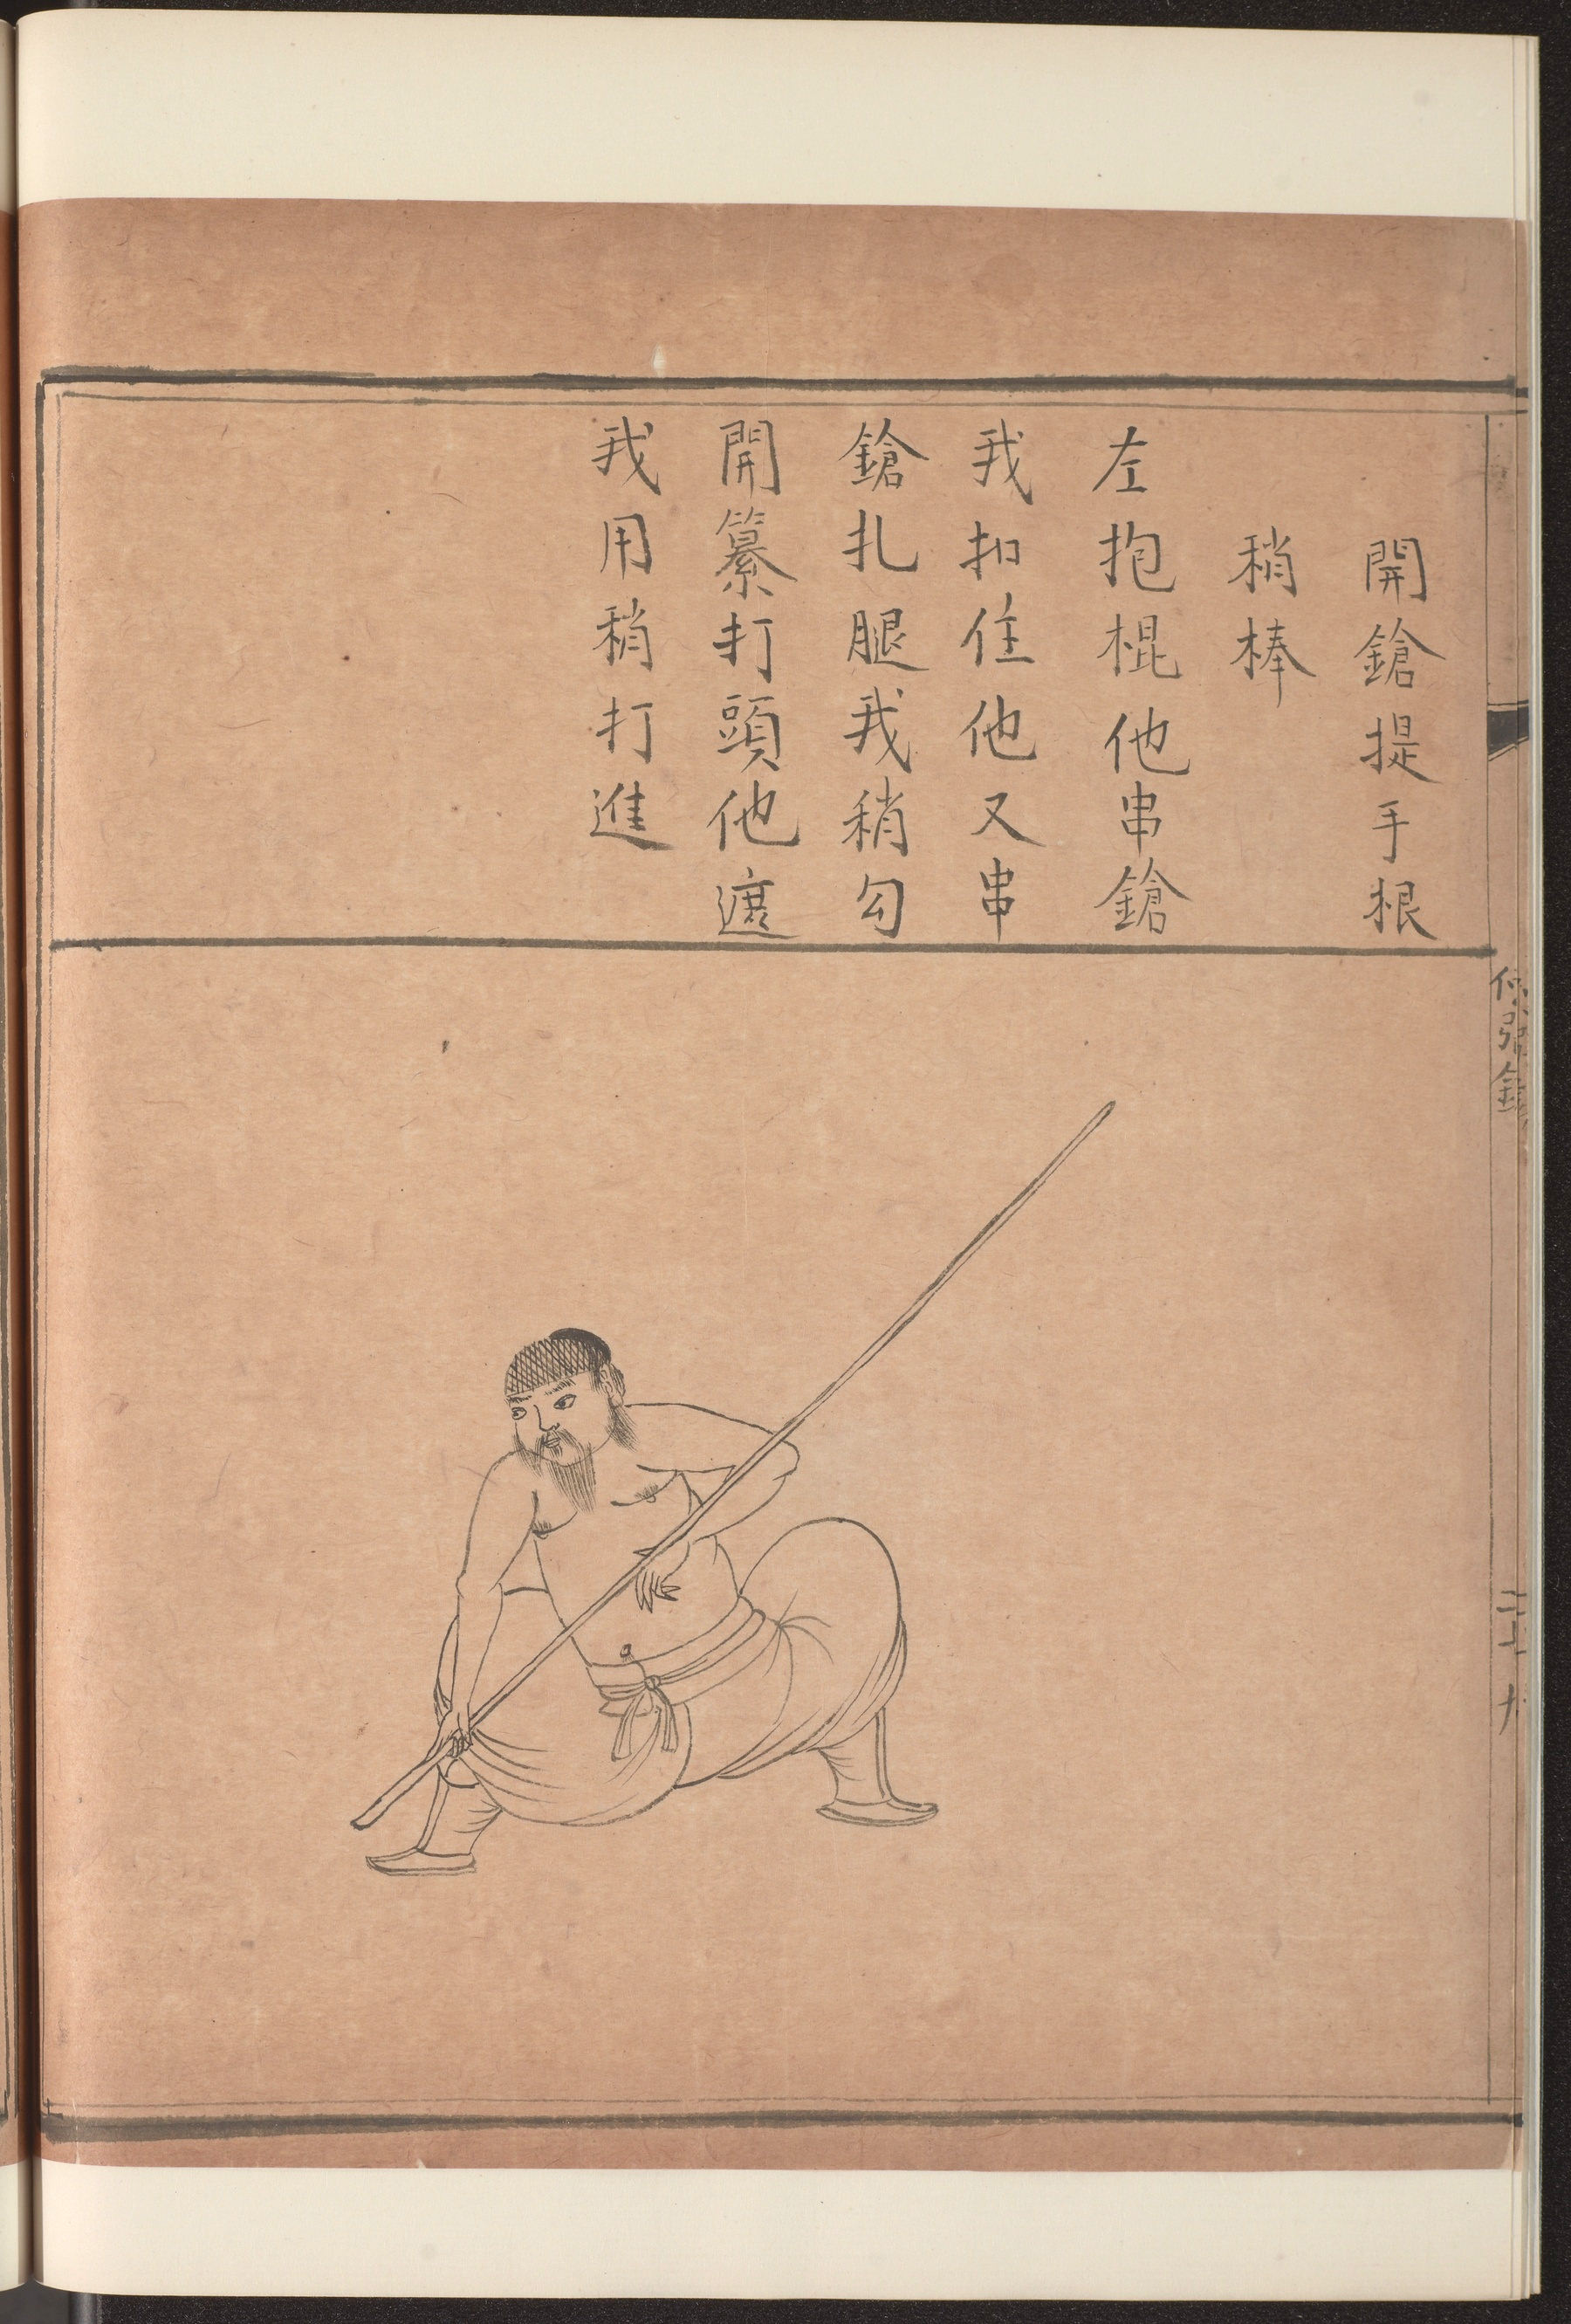 開鎗提手根
稍棒
左抱棍他串鎗
我扣住他又串
鎗扎腿我稍勾
開纂打頭他遮
我用稍打進